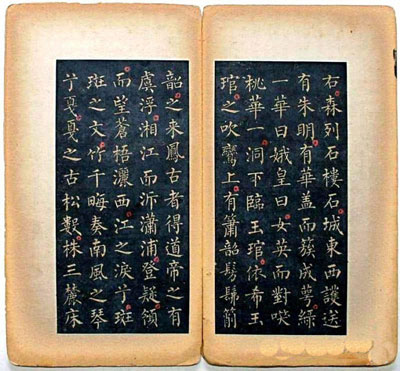 右森列石樓石城東西護送
有朱明有華盖而簇成萼綠
一華曰娥皇曰女英而對喫
桃華一洞下臨玉琯依希玉
琯之吹鸞上有簫韶髣髴箾
韶之来鳳古者得道帝之有
虞浮湘江而泝瀟浦登疑領
而望蒼梧灑西江之淚兮斑
斑之文竹千畮奏南風之琴
兮戛戛之古松數株三麓床